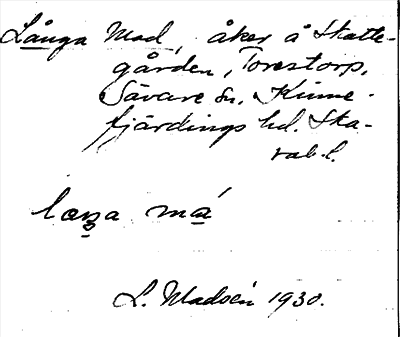 Långa Mad, åker å Skatte-
gården, Torestorp,
Sävare sn. Kinne-
fjärdings hd. Ska-
rab.l.
laŋa má
L. Madsén 1930.